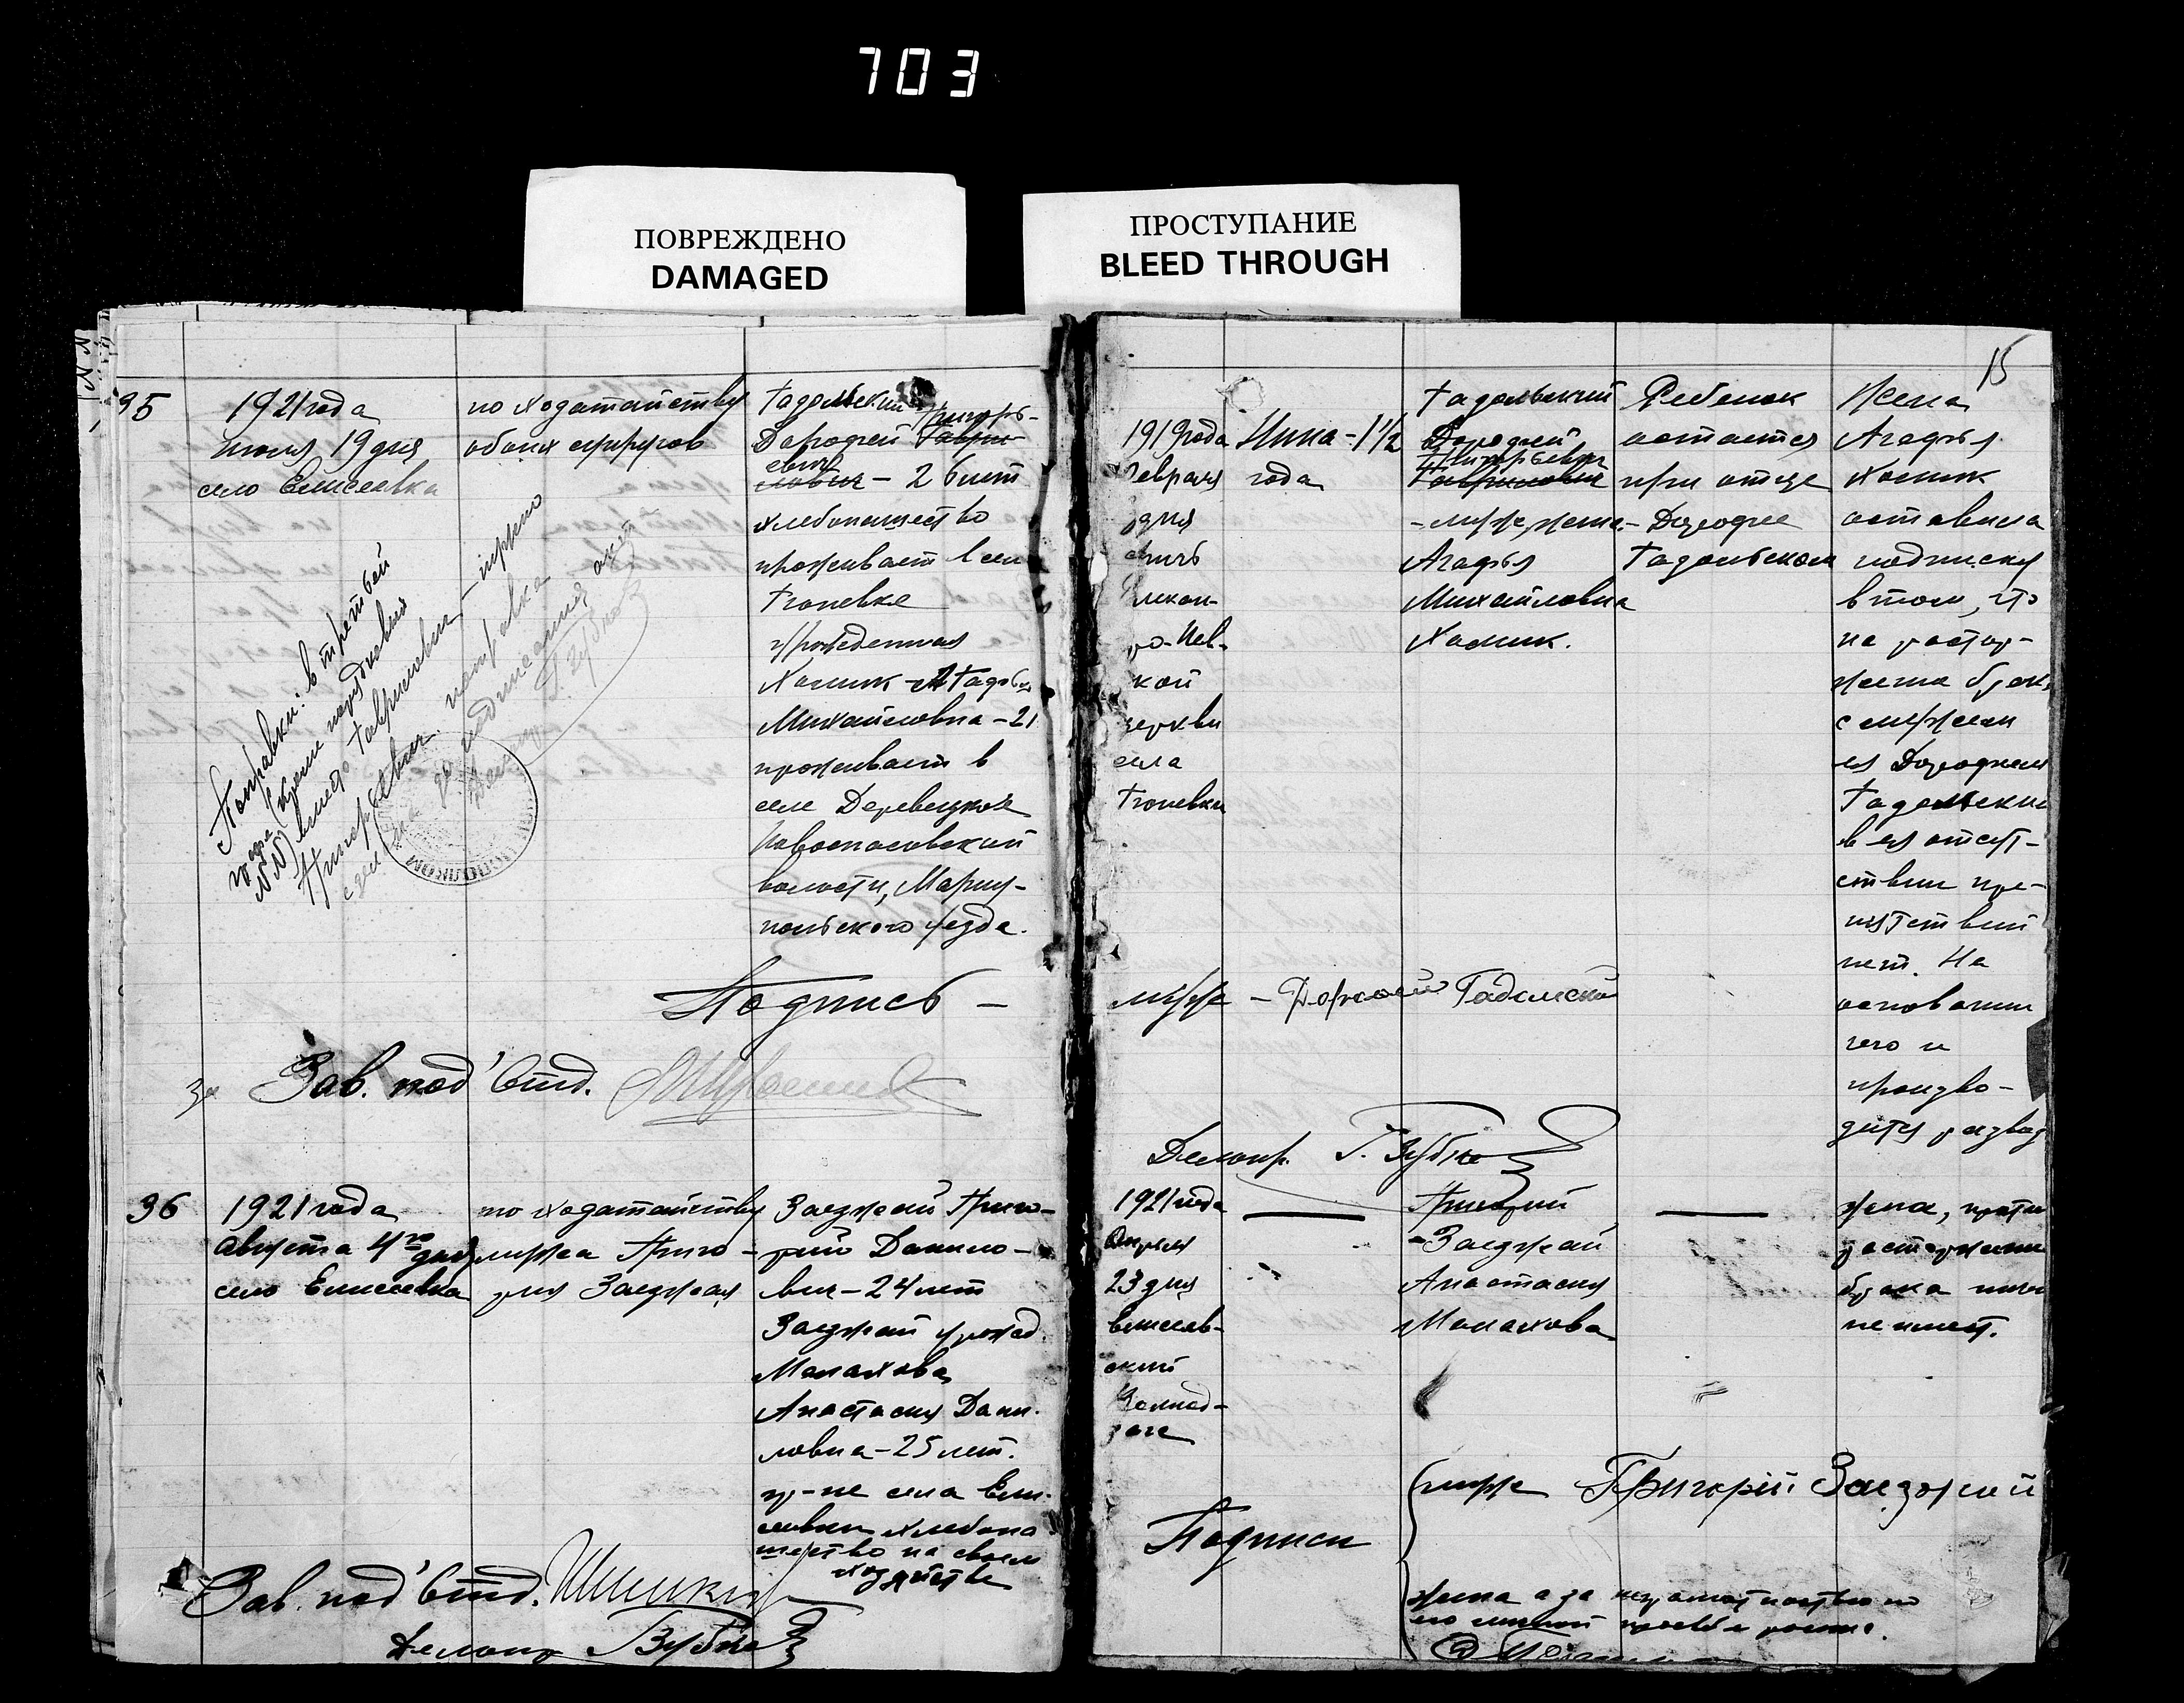 703
ПОВРЕЖДЕНО
DAMAGED
ПРОСТУПАНИЕ
BLEED THROUGH
15
35
1921 года
июля 19 дня
село Елисеевка
по ходатайству
обоих супругов
Гадомский Григорь-
Дорофей Гаври-
евич
лович – 26 лет
хлебопашество
проживает в селе
Троневке
урожденная
Хомик – Агафья
Михайловна – 21
проживает в
селе Деревецкое
Новоспасовской
волости, Мариу-
польского уезда.
1919 года
февраля
дня
церкви
села
Нина – 1½
года
Гадомский
Дорофей
Григорьевич
Гаврилович
– муж, жена –
Агафья
Михайловна
Хомик.
Ребенок
остается
при отце
Дорофее
Гадомском
Жена
Агафья
Хомик
оставила
подписку
в том, что
на растор-
жение брака
с мужем
ея Дорофеем
Гадомским
в ея отсут-
ствии пре-
пятствий
нет. На
основании
чего и
произво-
дится развод
Поправки: в третьей
графе
вместо Гаврилович – верно
Григорьевич
Подпись –
мужа – Дорофей Гадомский
За Зав. под'отд.
Делопр. Г. Зубко
36
1921 года
Августа 4го дня
село Елисеевка
по ходатайству
мужа Григо-
рия Заезжая
Заезжай Григо-
рий Данило-
вич – 24 лет
Заезжай урожд.
Малахова
Анастасия Дани-
ловна – 25 лет.
гр-не села Ели-
сеевки хлебопа
шество на своем
хозяйстве
1921 года
Апреля
23 дня
в елисеев-
ский
Григорий
Заезжай
Анастасия
Малахова
жена, против
расторжения
брака ничего
не имеет.
Подписи
мужа Григорий Заезжай
жена а за неграмотностью по
его личной просьбе
Зав. под'отд.
Делопр Г. Зубко